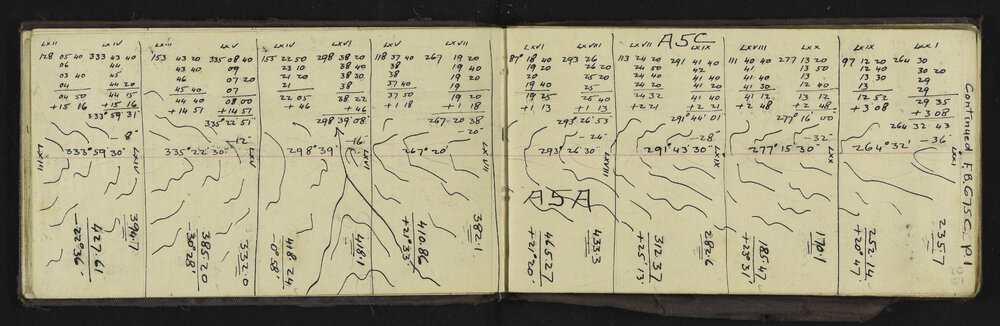 A5C
LXII LXIV
128 05 40 333 43 40
06 44
03 40 45
04 44 20
04 50 44 15
+15 16 +15 16
333°59 31
-8"
LXIII 333°59'30"
394.7
427.61
-22°36'
LXIII LXV
153 43 20 335 08 40
43 40 09
46 07 20
45 40 07
44 40 08 00
+14 51 +14 51
335°22 51
-12"
335°22'30" LXIV
332.0
385.20
-30°28'
LXIV LXVI
155 22 50 298 38 20
23 10 38 40
21 20 38 30
21 38
22 05 38 22
+46 +46
298 39 08
-16"
298°39' LXV
418.1
418.24
-0°58'
LXV LXVII
118 37 40 267 19 20
38 19 40
38 19
37 19 20
37 50 19 20
+1 18 +1 18
267-20 38
-20"
LXVI 267°20' LXVII
382.1
410.86
+21°33'
LXVI LXVIII
87° 18 40 293 26
20 26 20
20 25 20
19 40 25
19 25 25 40
+1 13 +1 13
293°26'53"
-24"
293°26'30" LXVIII
A5A
433.3
465.27
+21°20'
LXVII LXIX
113 24 20 291 41 40
24 50 42
24 40 41
24 20 41 40
24 32 41 40
+2 21 +2 21
291°44'01
-28"
291°43'30" LXIX
282.6
312.37
+25°13'
LXVIII LXX
111 40 40 277 13 20
41 13 50
41 20 13
41 30 12 40
41 12 13 12
+2 48 +2 48
277°16'00
-32"
277°15'30" LXX
170.1
185.47
+23°31'
LXIX LXXI
97 12 20 264 30
12 40 30
13 30 29 20
13 29
12 52 29 35
+3 08 +3 08
264 32 43
-36"
264°32' LXXI
235.7
252.14
+20°47'
Continued F.B.675C, P.1